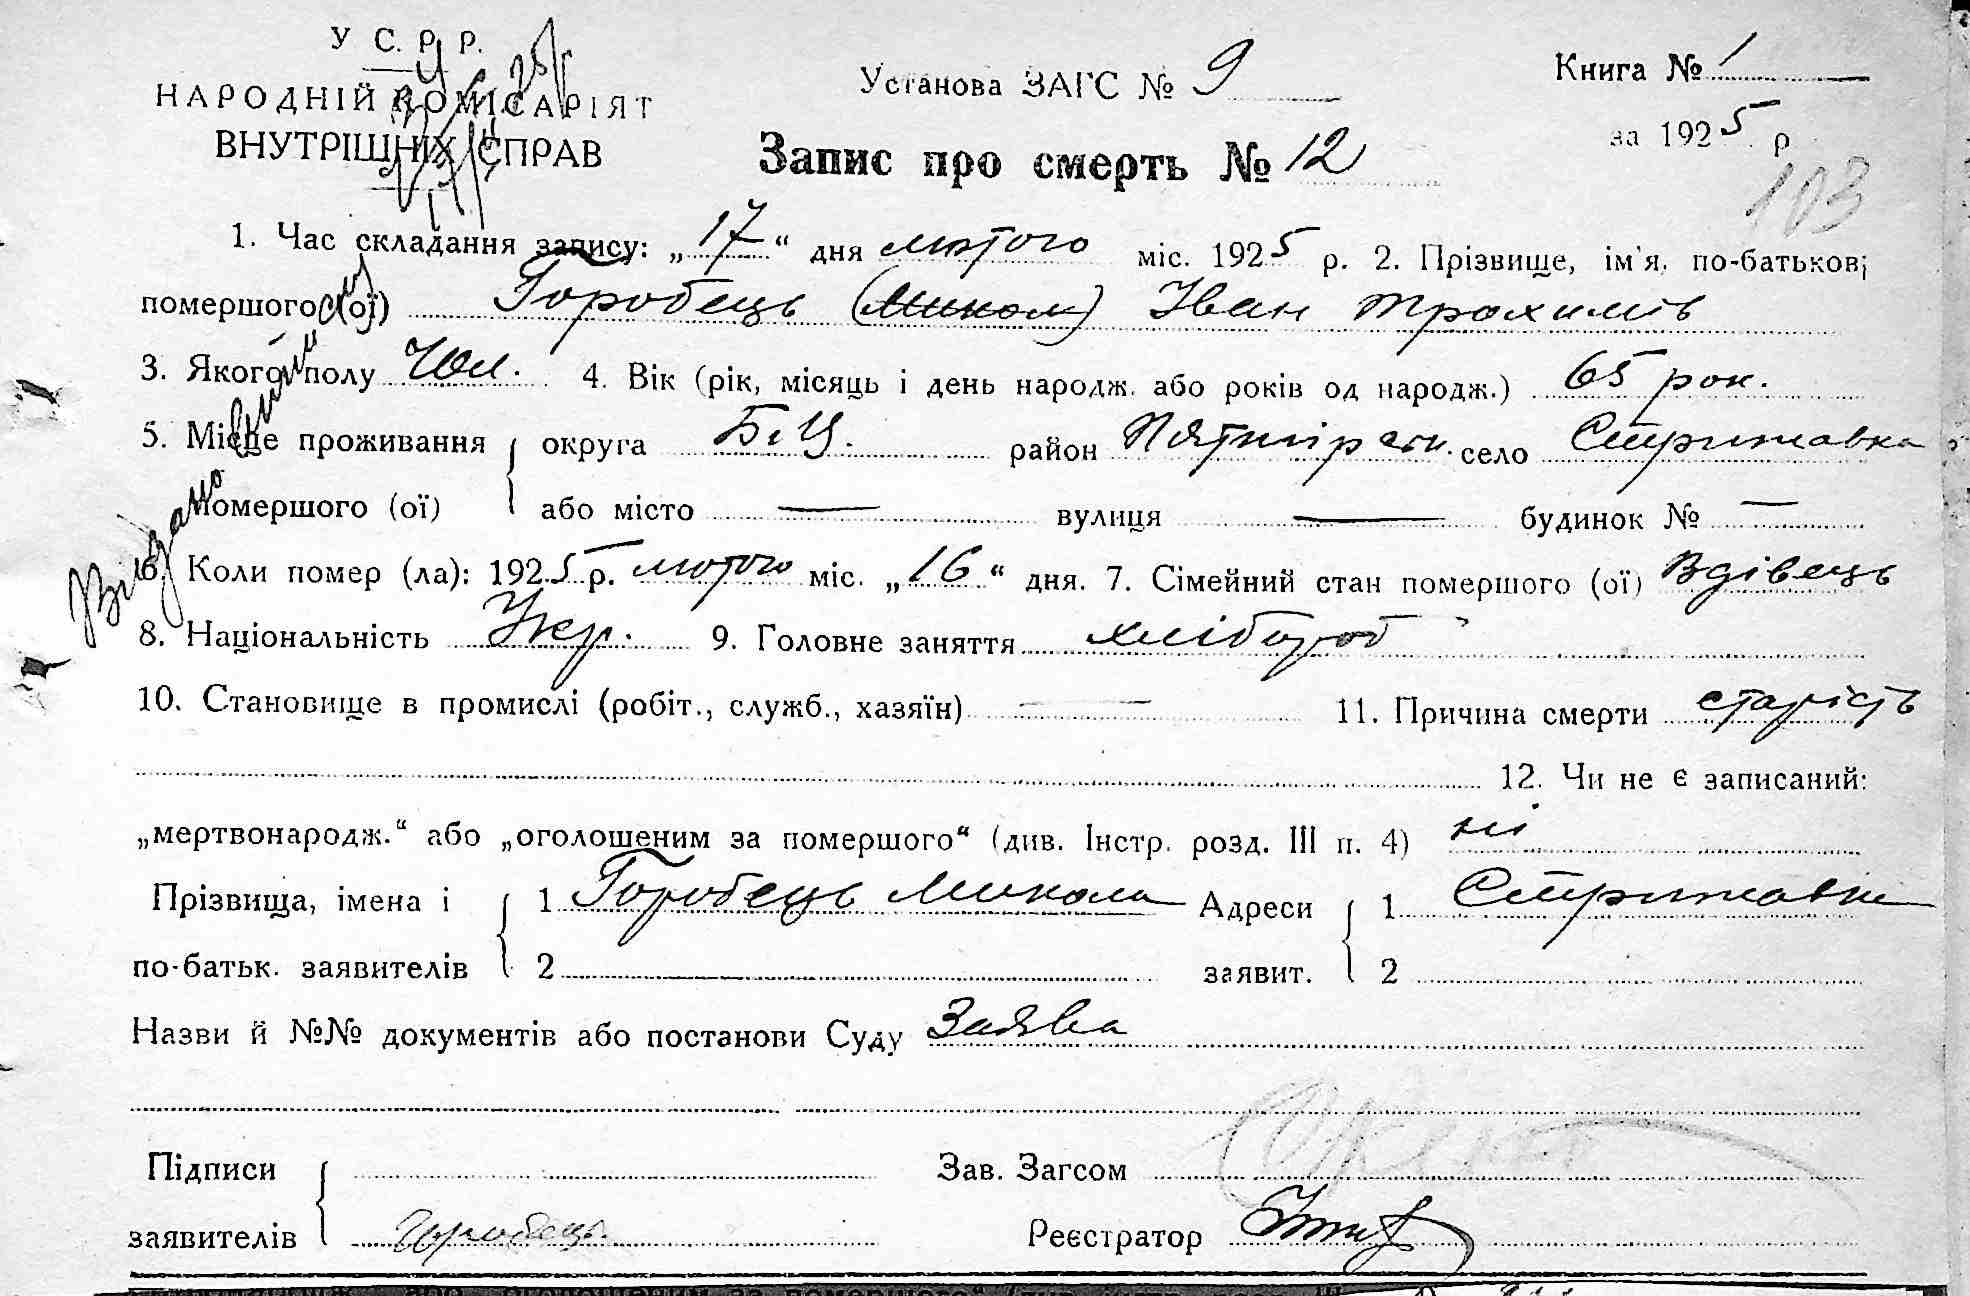 У С. Р. Р.
НАРОДНІЙ КОМІСАРІЯТ
ВНУТРІШНІХ СПРАВ
Установа ЗАГС № 9
Книга № 1
за 1925 р
Запис про смерть № 12
103
1. Час складання запису: „17“ дня лютого міс. 1925 р. 2. Прізвище, ім'я, по-батькові
помершого (ої) Горобець (Микол) Іван Трохимів
3. Якого полу Чол. 4. Вік (рік, місяць і день народж. або років од народж.) 65 рок.
5. Місце проживання округа Б.Ц. район Пятигірськ. село Стрижавка
помершого (ої) або місто — вулиця — будинок № —
Видано
6. Коли помер (ла): 1925 р. лютого міс. „16“ дня. 7. Сімейний стан помершого (ої) Вдівець
8. Національність Укр. 9. Головне заняття хлібороб
10. Становище в промислі (робіт., служб., хазяїн) — 11. Причина смерти старість
12. Чи не є записаний:
„мертвонародж.“ або „оголошеним за помершого“ (див. Інстр. розд. III п. 4) ні
Прізвища, імена і 1 Горобець Микола Адреси 1 Стрижавка
по-батьк. заявителів 2 заявит. 2
Назви й №№ документів або постанови Суду Заява
Підписи Зав. Загсом
заявителів Горобець. Реєстратор